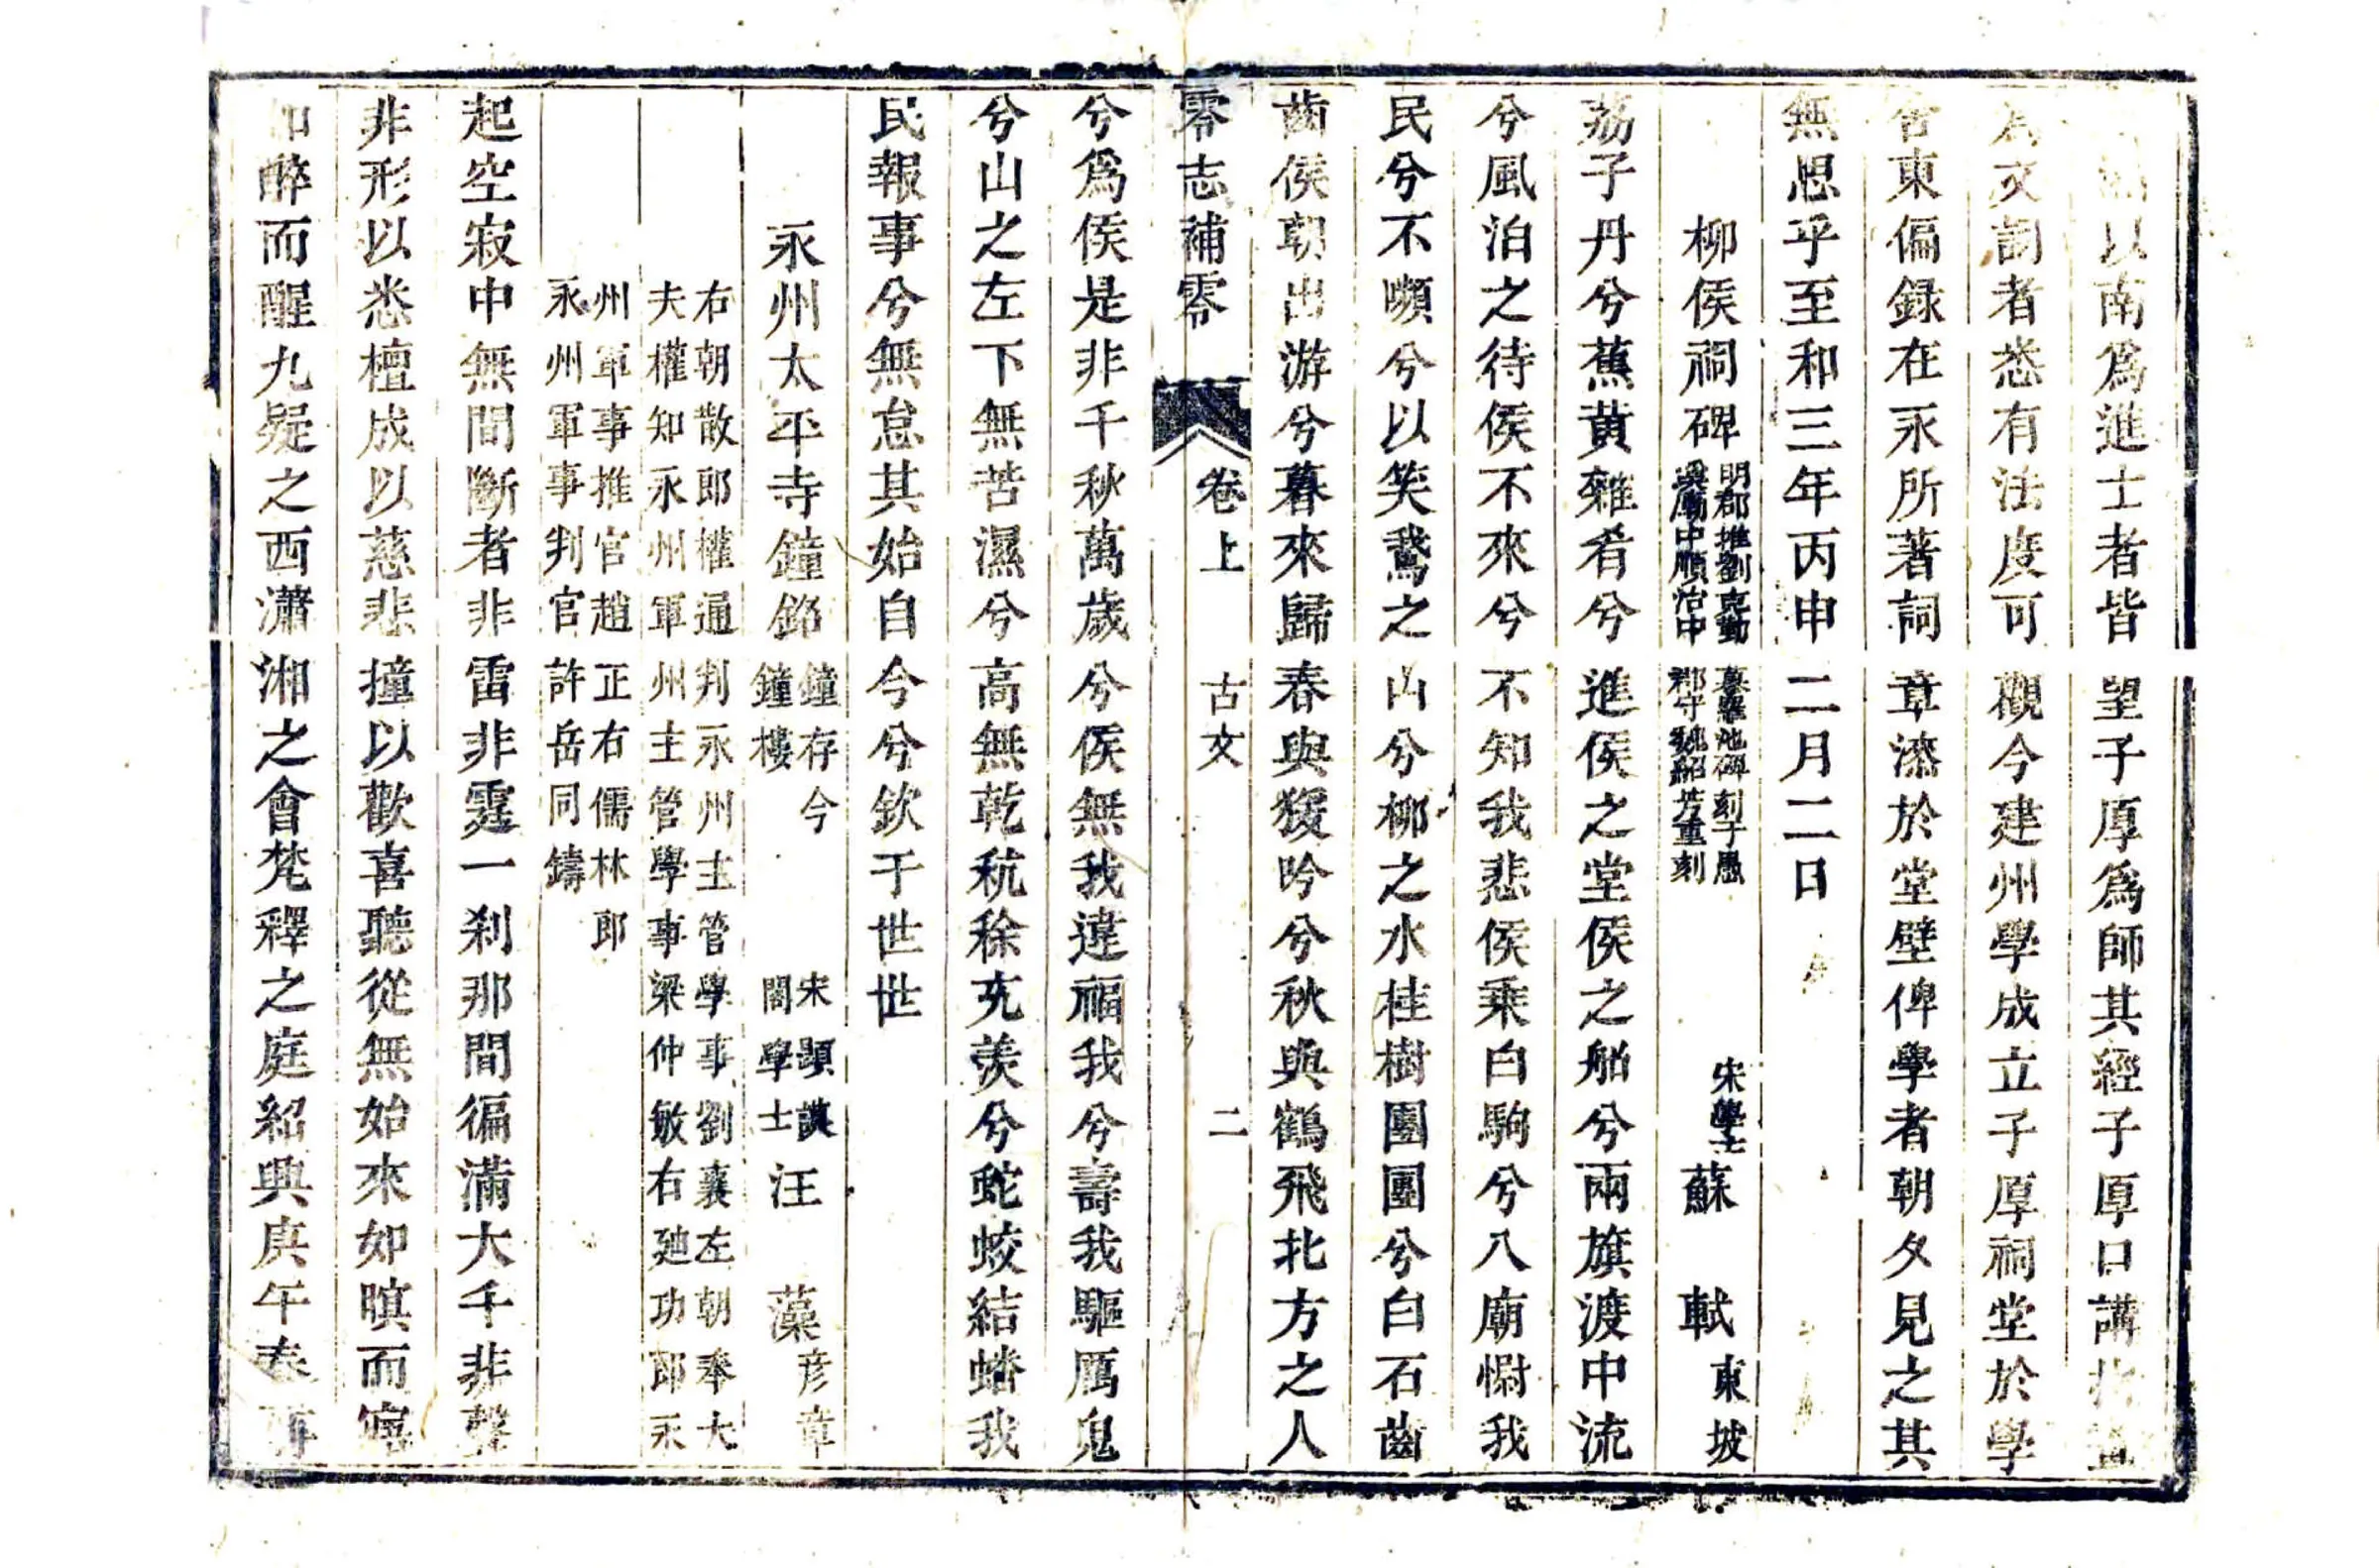 以南爲進士者皆望子厚爲師其經子厚口講指畫
爲文詞者悉有法度可觀今建州學成立子厚祠堂於學
舍東偏録在永所著詞章漆於堂壁俾學者朝夕見之其
無思乎至和三年丙申二月二日
柳侯祠碑
明郡推劉克勤摹羅池碑刻于愚
溪廟中順治中郡守魏紹芳重刻
宋學士蘇軾東坡
荔子丹兮蕉黄雜肴兮進侯之堂侯之船兮兩旗渡中流
兮風泊之待侯不來兮不知我悲侯乘白駒兮入廟慰我
民兮不嚬兮以笑鵞之山兮柳之水桂樹團團兮白石齒
齒侯朝出游兮暮來歸春與猨吟兮秋與鶴飛北方之人
零志補零
卷上
古文
二
兮爲侯是非千秋萬歲兮侯無我違福我兮壽我驅厲鬼
兮山之左下無苦濕兮高無乾秔稌充羨兮蛇蛟結蟠我
民報事兮無怠其始自今兮欽于世世
永州太平寺鐘銘
鐘存今
鐘樓
宋顯謨
閣學士汪藻彦章
右朝散郎權通判永州主管學事劉襄左朝奉大
夫權知永州軍州主管學事梁仲敏右廸功郎永
州軍事推官趙正右儒林郎
永州軍事判官許岳同鑄
起空寂中無間斷者非雷非霆一刹那間徧滿大千非聲
非形以悉檀成以慈悲撞以歡喜聽從無始來如瞑而寤
如醉而醒九疑之西瀟湘之會梵釋之庭紹興庚午春